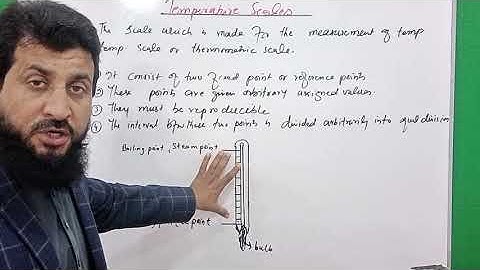 Temperature Scales
The scale which is made for the measurement of temp
temp scale or thermometric scale.
It consist of two fixed point or reference points
These points are given arbitrary assigned values
③ They must be reproducible
④ The interval b/w these two points is divided arbitrarily into equal division
Boiling point, Steam point
point
bulb